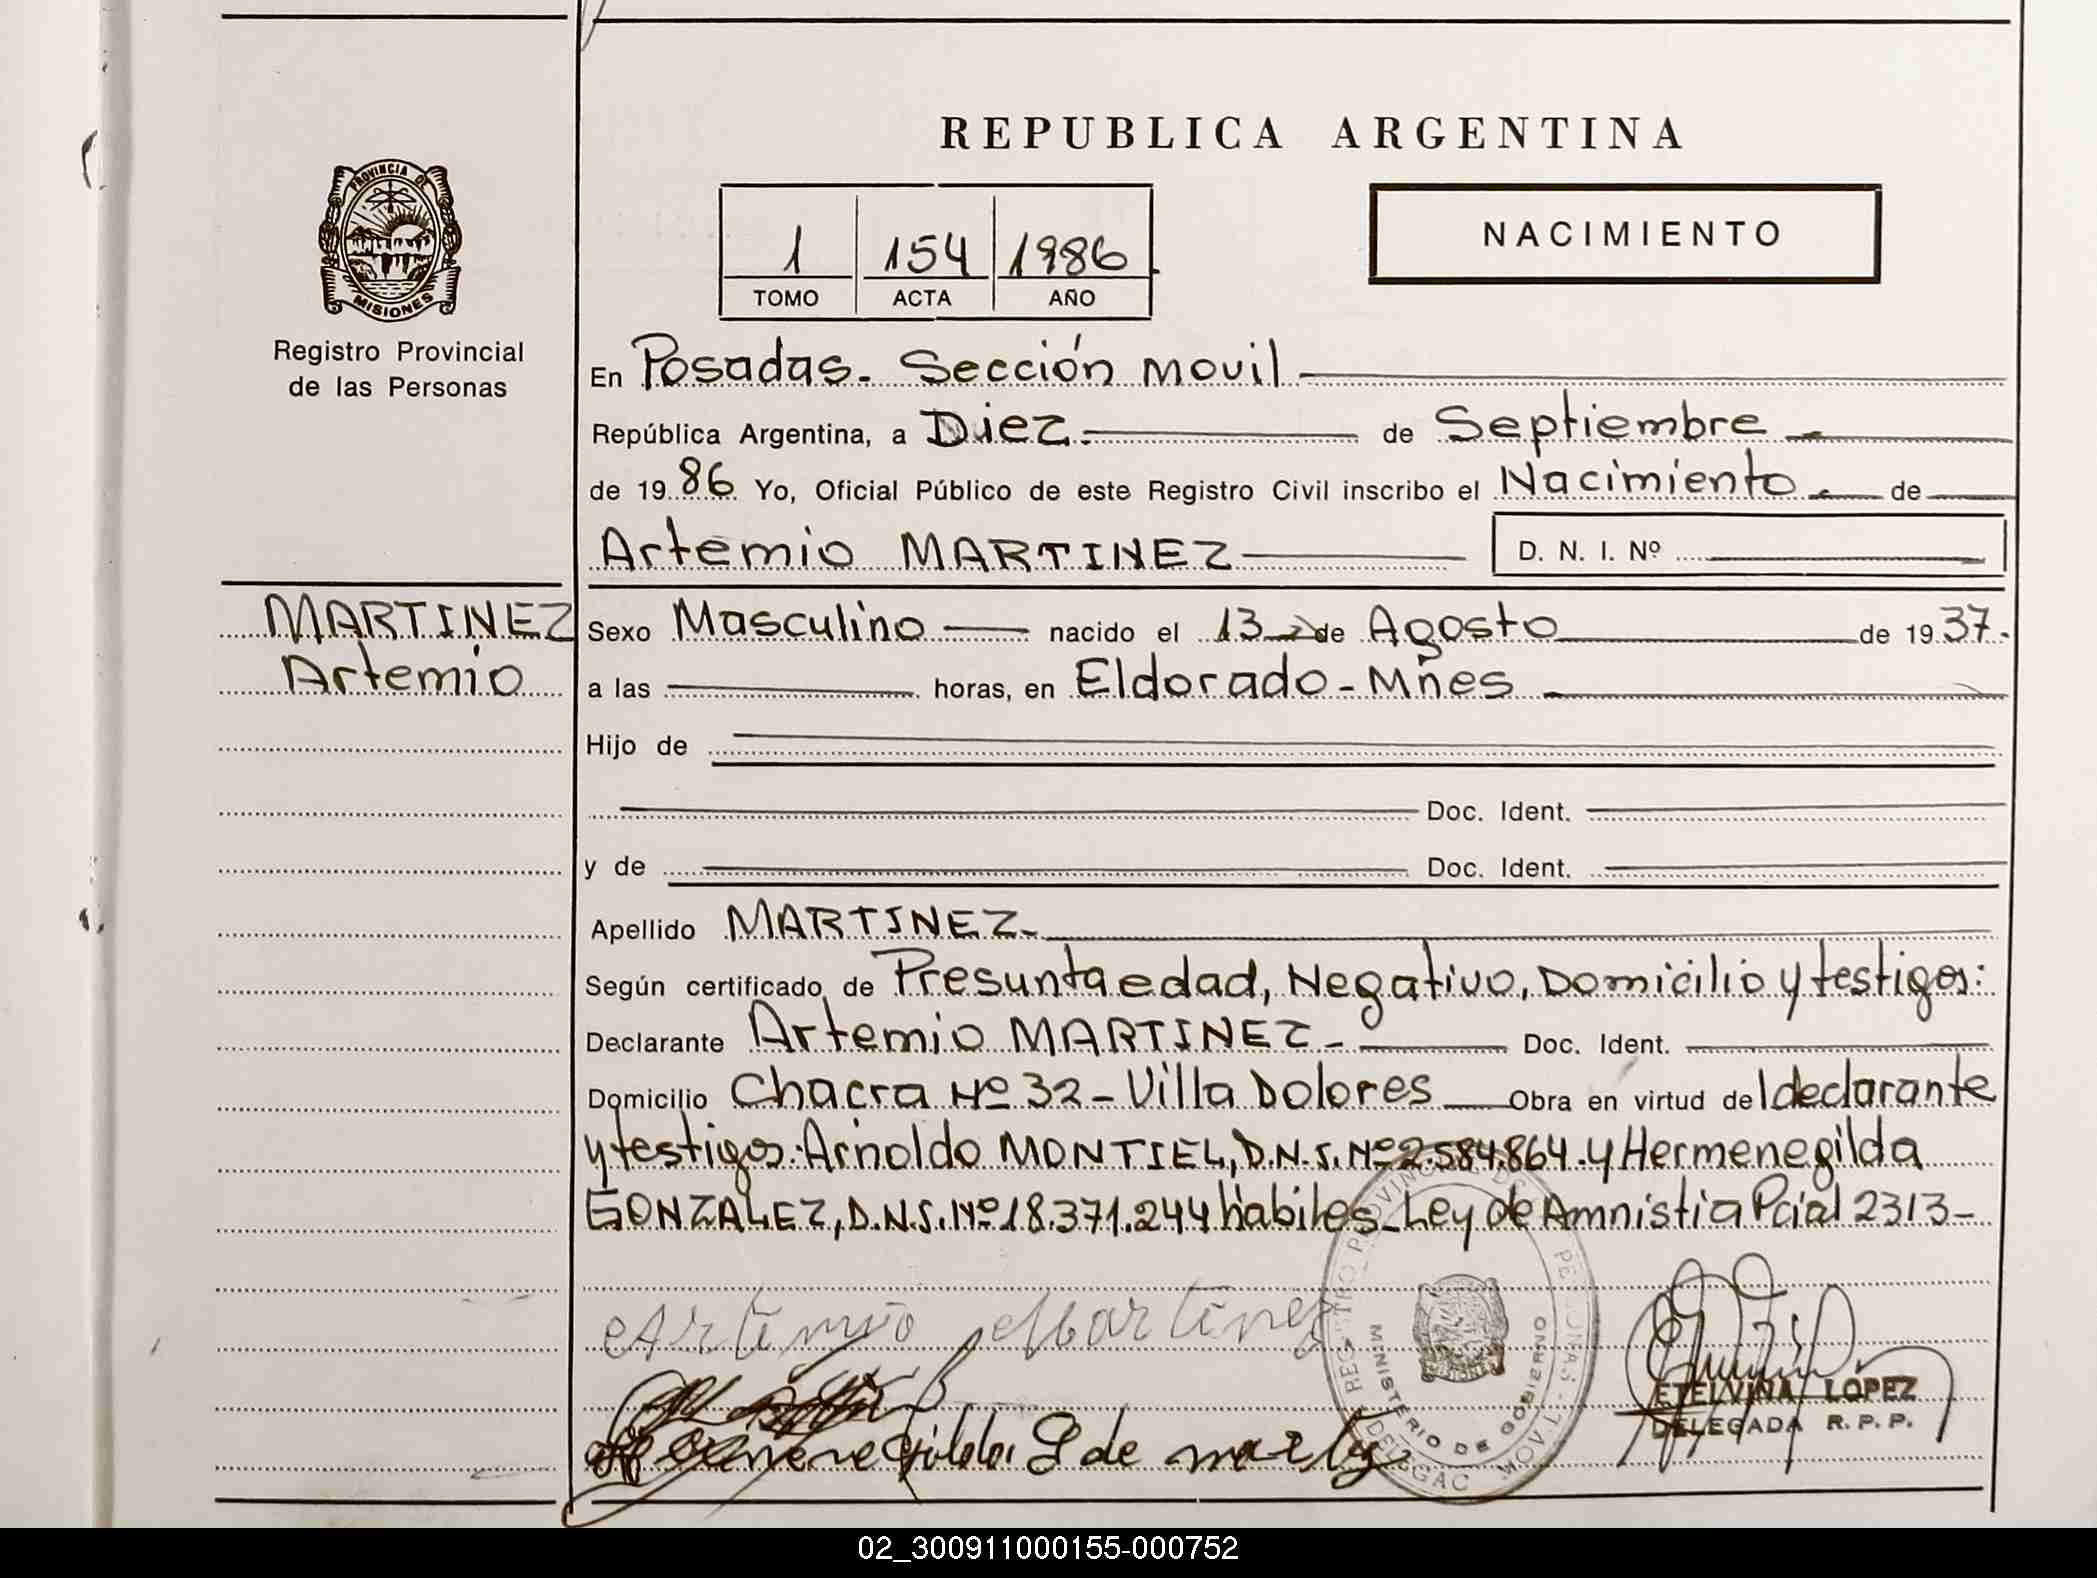 REPUBLICA ARGENTINA
PROVINCIA DE
MISIONES
Registro Provincial
de las Personas
1 154 1986
TOMO ACTA AÑO
NACIMIENTO
En Posadas. Sección movil
República Argentina, a Diez. de Septiembre
de 1986 Yo, Oficial Público de este Registro Civil inscribo el Nacimiento. de
Artemio MARTINEZ D. N. I. Nº
MARTINEZ
Artemio
Sexo Masculino nacido el 13 de Agosto de 1937.
a las horas, en Eldorado - Mñes
Hijo de
Doc. Ident.
y de Doc. Ident.
Apellido MARTINEZ
Según certificado de Presunta edad, Negativo, Domicilio y testigos:
Declarante Artemio MARTINEZ - Doc. Ident.
Domicilio Chacra Nº 32 - Villa Dolores Obra en virtud del declarante
y testigos: Arnoldo MONTIEL, D.N.I. Nº 2.584.864. y Hermenegilda
GONZALEZ, D.N.I. Nº 18.371.244 habiles - Ley de Amnistia Pcial 2313 -
Artemio Martinez
REGISTRO PROVINCIAL
MINISTERIO DE GOBIERNO
ETELVINA LOPEZ
DELEGADA R. P. P.
de
02_300911000155-000752